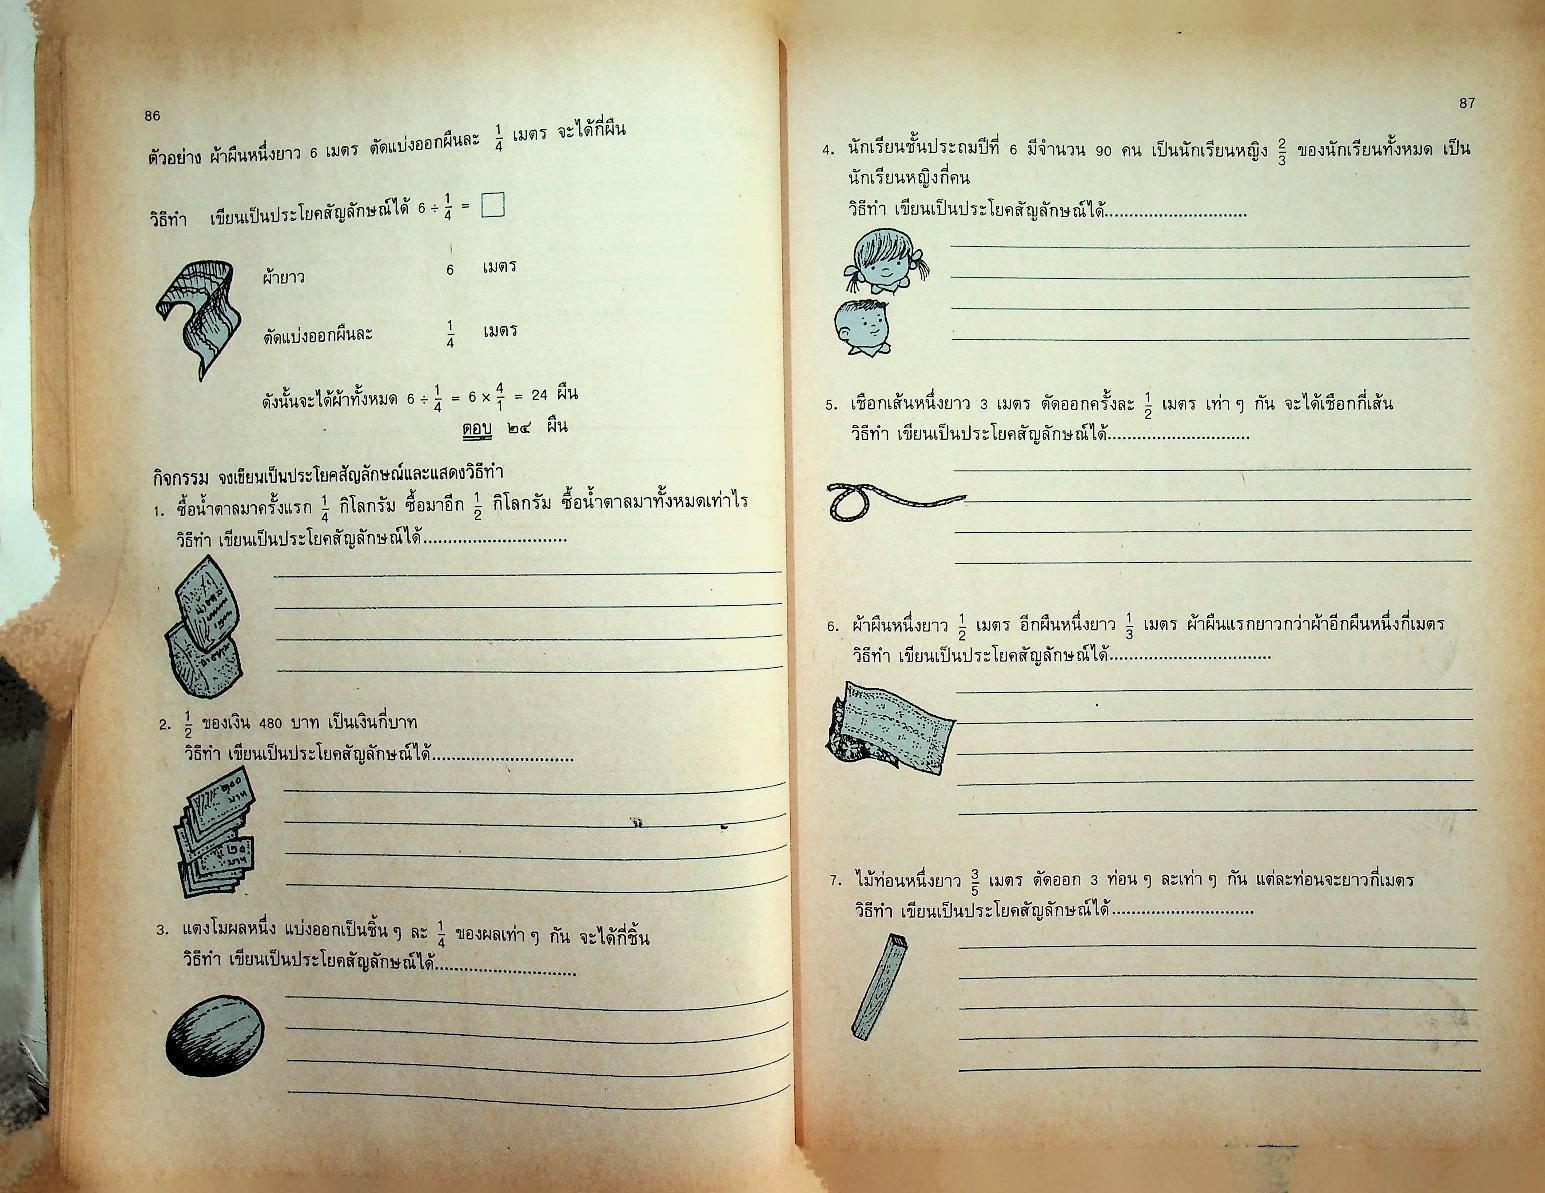 86
ตัวอย่าง ผ้าผืนหนึ่งยาว 6 เมตร ตัดแบ่งออกผืนละ 1/4 เมตร จะได้กี่ผืน
วิธีทำ เขียนเป็นประโยคสัญลักษณ์ได้ 6 ÷ 1/4 = □
ผ้ายาว 6 เมตร
ตัดแบ่งออกผืนละ 1/4 เมตร
ดังนั้นจะได้ผ้าทั้งหมด 6 ÷ 1/4 = 6 × 4/1 = 24 ผืน
ตอบ ๒๔ ผืน
กิจกรรม จงเขียนเป็นประโยคสัญลักษณ์และแสดงวิธีทำ
1. ซื้อน้ำตาลมาครั้งแรก 1/4 กิโลกรัม ซื้อมาอีก 1/2 กิโลกรัม ซื้อน้ำตาลมาทั้งหมดเท่าไร
วิธีทำ เขียนเป็นประโยคสัญลักษณ์ได้............................
2. 1/2 ของเงิน 480 บาท เป็นเงินกี่บาท
วิธีทำ เขียนเป็นประโยคสัญลักษณ์ได้............................
๑๐๐
บาท
๒๐
บาท
3. แตงโมผลหนึ่ง แบ่งออกเป็นชิ้น ๆ ละ 1/4 ของผลเท่า ๆ กัน จะได้กี่ชิ้น
วิธีทำ เขียนเป็นประโยคสัญลักษณ์ได้............................
87
4. นักเรียนชั้นประถมปีที่ 6 มีจำนวน 90 คน เป็นนักเรียนหญิง 2/3 ของนักเรียนทั้งหมด เป็น
นักเรียนหญิงกี่คน
วิธีทำ เขียนเป็นประโยคสัญลักษณ์ได้............................
5. เชือกเส้นหนึ่งยาว 3 เมตร ตัดออกครั้งละ 1/2 เมตร เท่า ๆ กัน จะได้เชือกกี่เส้น
วิธีทำ เขียนเป็นประโยคสัญลักษณ์ได้............................
6. ผ้าผืนหนึ่งยาว 1/2 เมตร อีกผืนหนึ่งยาว 1/3 เมตร ผ้าผืนแรกยาวกว่าผ้าอีกผืนหนึ่งกี่เมตร
วิธีทำ เขียนเป็นประโยคสัญลักษณ์ได้................................
7. ไม้ท่อนหนึ่งยาว 3/5 เมตร ตัดออก 3 ท่อน ๆ ละเท่า ๆ กัน แต่ละท่อนจะยาวกี่เมตร
วิธีทำ เขียนเป็นประโยคสัญลักษณ์ได้............................